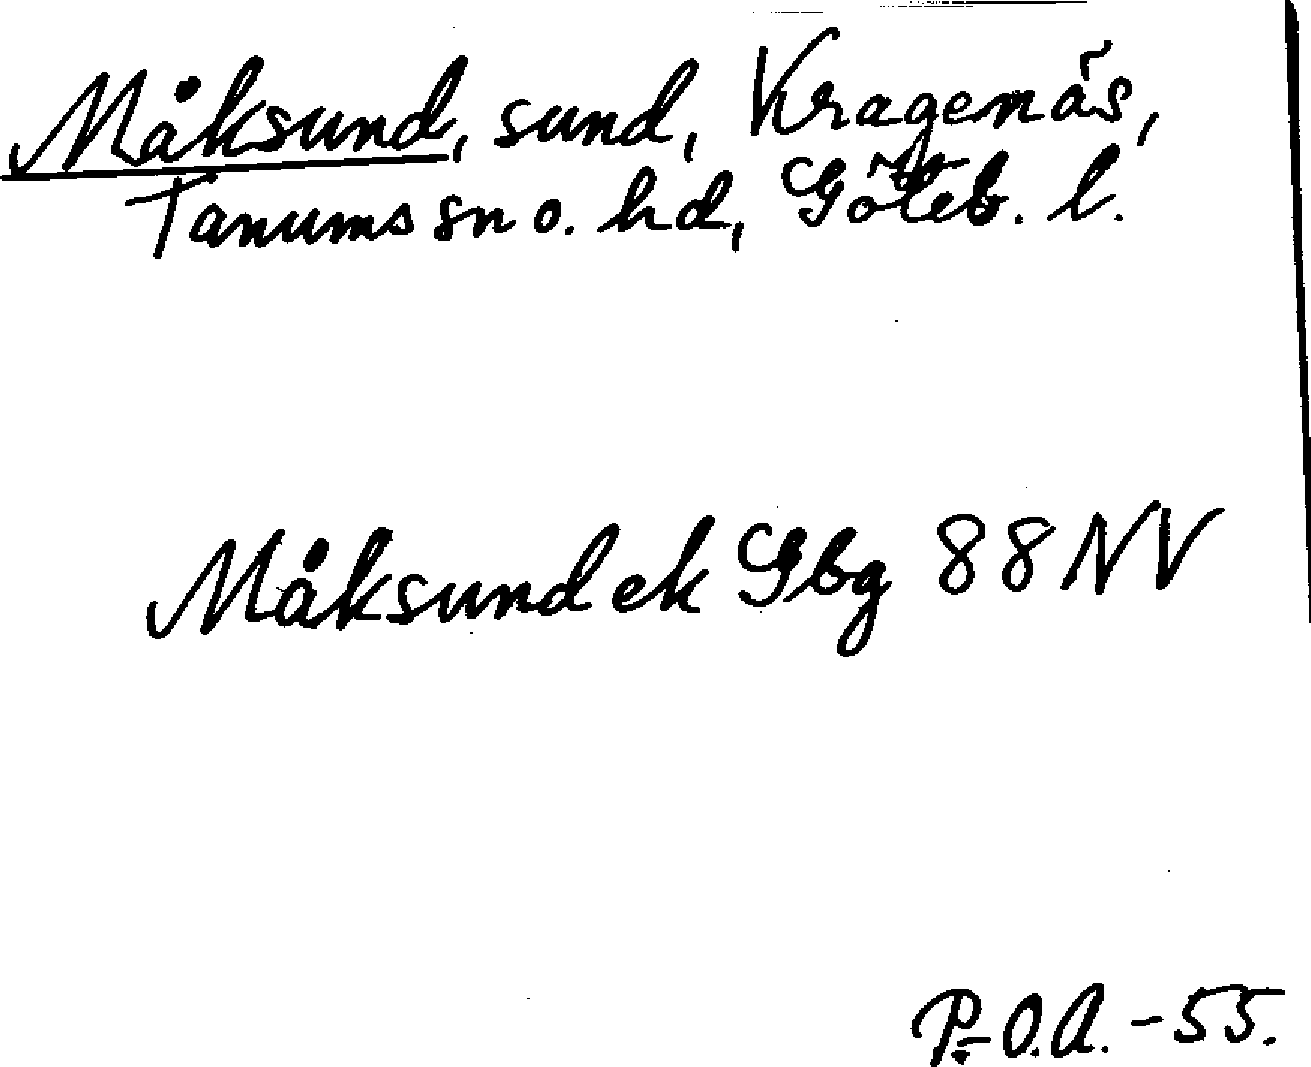 Måksund, sund, Kragenäs,
Tanums sn o. hd, Göteb. l.
Måksund ek Gbg 88 NV
P.-O.A. -55.